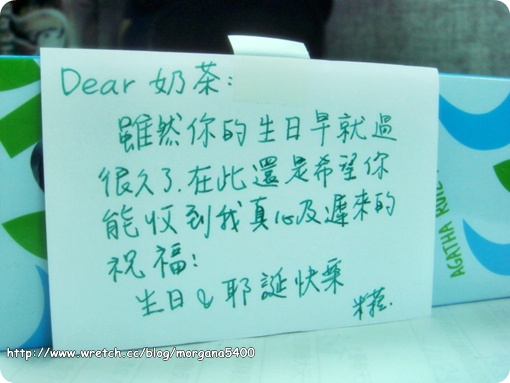 Dear 奶茶:
雖然你的生日早就過
很久了.在此還是希望你
能收到我真心及遲來的
祝福:
生日 & 耶誕快樂
AGATHA RUIZ
http://www.wretch.cc/blog/morgana5400